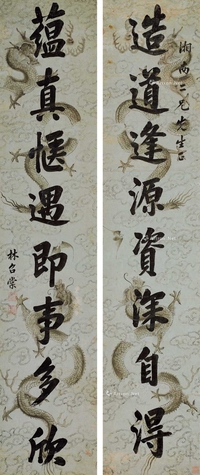 造道逢源資深自得
湘雨二兄先生正
蘊真愜遇即事多欣
林召棠